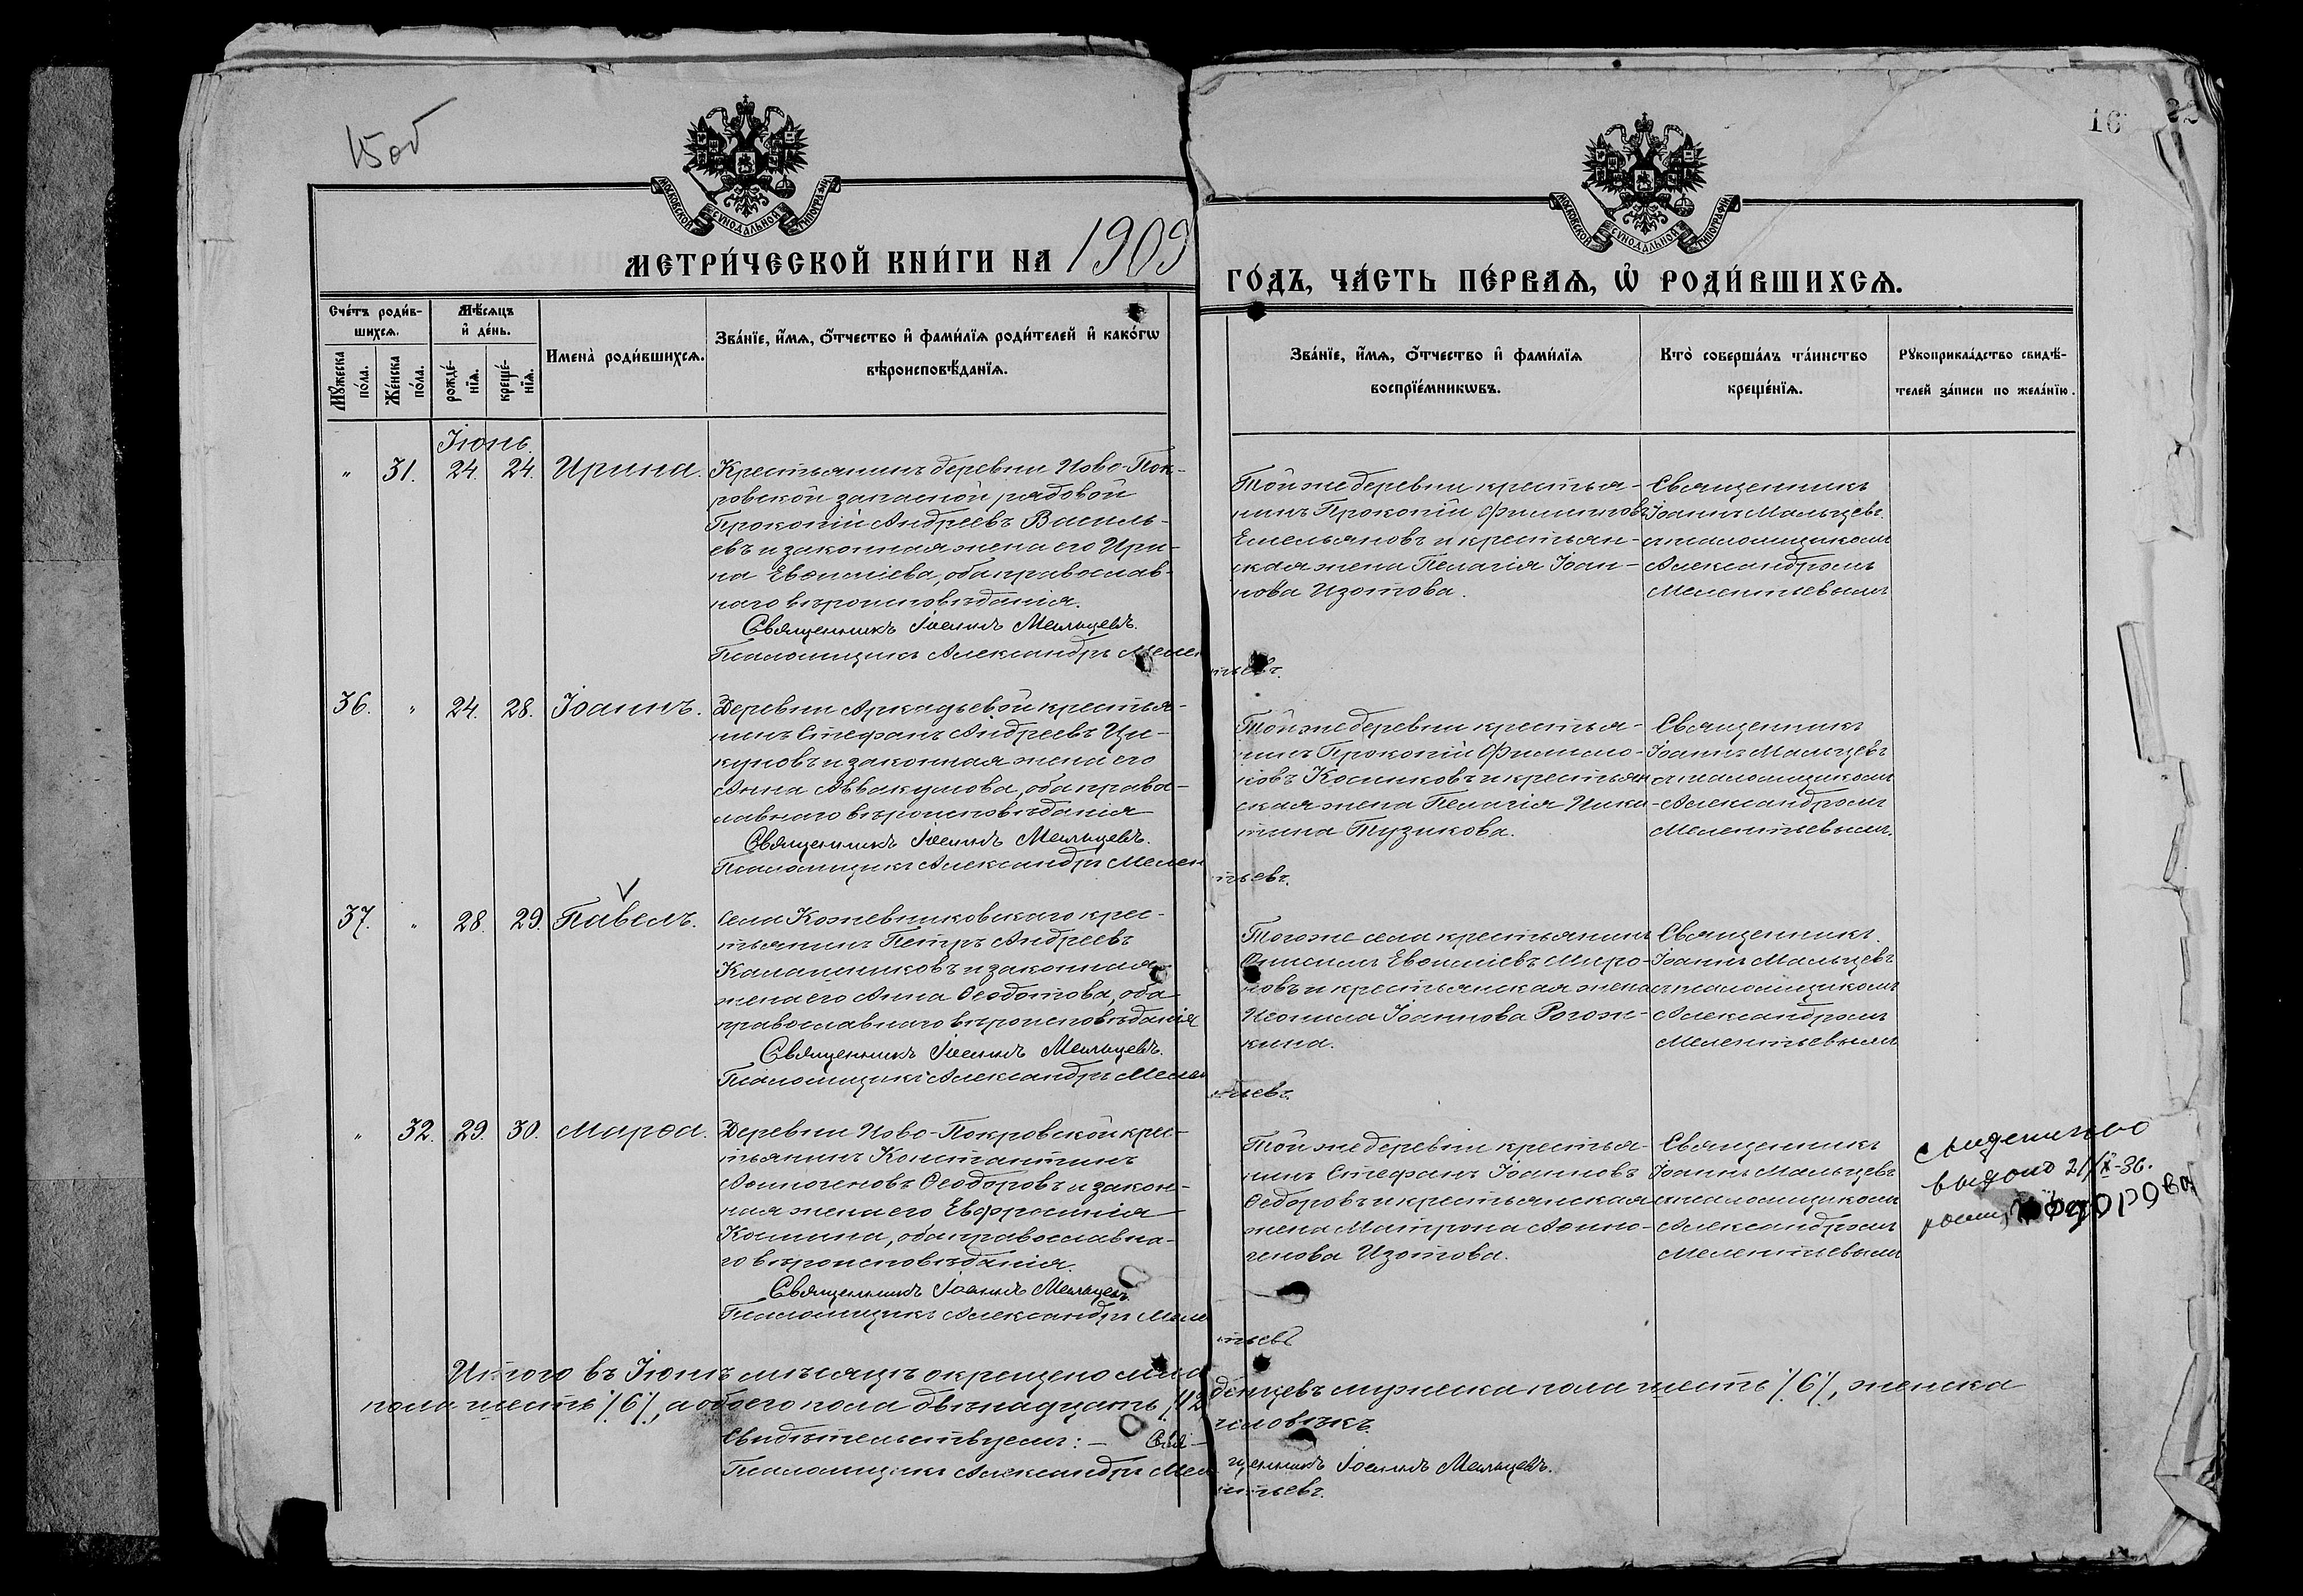 15 об
16
МОСКОВСКОЙ СУНОДАЛЬНОЙ ТИПОГРАФІИ
МОСКОВСКОЙ СУНОДАЛЬНОЙ ТИПОГРАФІИ
МЕТРИ́ЧЕСКОЙ КНИ́ГИ НА 1909
ГО́ДЪ, ЧА́СТЬ ПЕ́РВАѦ, Ѽ РОДИ́ВШИХСѦ.
Сче́тъ роди́в-
шихсѧ.
Мꙋжеска по́ла.
Же́нска по́ла.
Мѣ́сѧцъ
и҆ де́нь.
рожде́-
нїѧ.
креще́-
нїѧ.
Имена̀ роди́вшихсѧ.
Зва́нїе, и҆́мѧ, ѻ҆́тчество и҆ фами́лїѧ роди́телей и҆ како́гѡ
вѣроисповѣ́данїѧ.
Зва́нїе, и҆́мѧ, ѻ҆́тчество и҆ фами́лїѧ
воспрїе́мникѡвъ.
Кто̀ соверша́лъ та́инство
креще́нїѧ.
Рꙋкоприкла́дство свидѣ́-
телей за́писи по жела́нїю.
Іюнь.
" 31. 24. 24. Ирина.
Крестьянинъ деревни Ново-Пок-
ровской запасной рядовой
Прокопій Андреевъ Василь-
евъ и законная жена его Ири-
на Евѳиміева, оба православ-
наго вѣроисповѣданія.
Священникъ Іоаннъ Мальцевъ.
Псаломщикъ Александръ Мелентьевъ.
Той же деревни крестья-
нинъ Прокопій Филиповъ
Емельяновъ и крестьян-
ская жена Пелагія Іоан-
нова Изотова.
Священникъ
Іоаннъ Мальцевъ
съ псаломщикомъ
Александромъ
Мелентьевымъ
36. " 24. 28. Іоаннъ.
Деревни Аркадьевой крестья-
нинъ Стефанъ Андреевъ Ци-
куновъ и законная жена его
Анна Аввакумова, оба право-
славнаго вѣроисповѣданія
Священникъ Іоаннъ Мальцевъ.
Псаломщикъ Александръ Мелентьевъ.
Той же деревни крестья-
нинъ Прокопій Филимо-
новъ Косинковъ и крестьян
ская жена Пелагія Ники-
тина Тузикова.
Священникъ
Іоаннъ Мальцевъ
съ псаломщикомъ
Александромъ
Мелентьевымъ.
37. " 28. 29. Павелъ.
Села Кожевниковскаго крес-
тьянинъ Петръ Андреевъ
Калашниковъ и законная
жена его Анна Ѳеодотова, оба
православнаго вѣроисповѣданія
Священникъ Іоаннъ Мальцевъ.
Псаломщикъ Александръ Мелентьевъ.
Того же села крестьянинъ
Онисимъ Евѳиміевъ Миро-
новъ и крестьянская жена
Неонила Іоаннова Рогож-
кина.
Священникъ
Іоаннъ Мальцевъ
съ псаломщикомъ
Александромъ
Мелентьевымъ
" 32. 29. 30. Марѳа.
Деревни Ново-Покровской крес-
тьянинъ Константинъ
Аѳиногеновъ Ѳеодоровъ и закон-
ная жена его Евфросинія
Космина, оба православна-
го вѣроисповѣданія.
Священникъ Іоаннъ Мальцевъ.
Псаломщикъ Александръ Мелентьевъ
Той же деревни крестья-
нинъ Стефанъ Іоанновъ
Ѳедоровъ и крестьянская
жена Матрона Аѳино-
генова Изотова.
Священникъ
Іоаннъ Мальцевъ
съ псаломщикомъ
Александромъ
Мелентьевымъ
выдано 21/X-36.
Федорова
Итого въ Іюнѣ мѣсяцѣ окрещено младенцевъ мужеска пола шесть /6/, женска
пола шесть /6/, а обоего пола двѣнадцать /12 человѣкъ.
Свидѣтельствуемъ: – Священникъ Іоаннъ Мальцевъ.
Псаломщикъ Александръ Мелентьевъ.